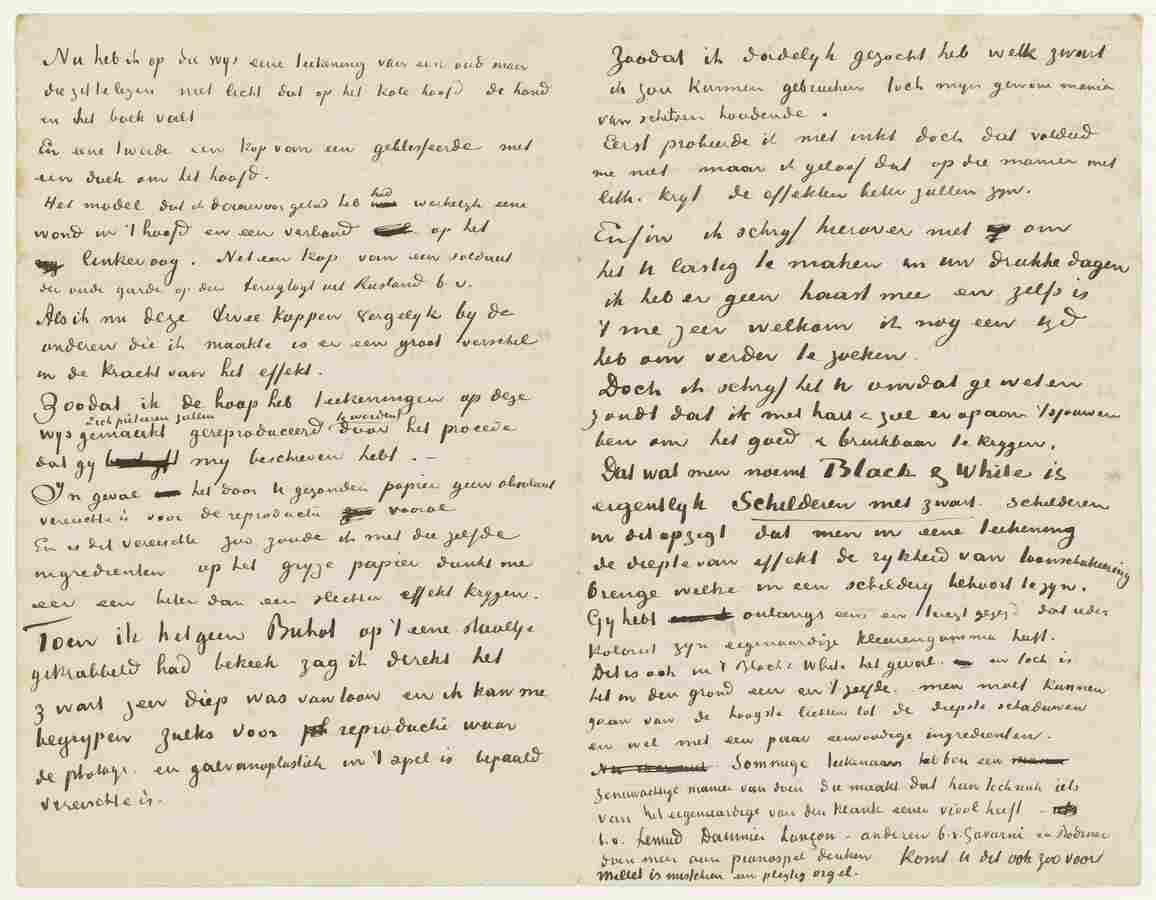 Nu heb ik op die wijs eene teekening van een oud man
die zit te lezen met licht dat op het kale hoofd de hand
en het boek valt
En eene tweede een kop van een geblesseerde met
een doek om het hoofd.
Het model dat ik daarvoor gehad heb had werkelijk eene
wond in 't hoofd en een verband op het
linkeroog. Net een kop van een soldaat
der oude garde op den terugtogt uit Rusland b.v.
Als ik nu deze twee koppen vergelyk by de
anderen die ik maakte is er een groot verschil
in de kracht van het effekt.
Zoodat ik de hoop heb teekeningen op deze
zich zullen
wys gemaakt gereproduceerd te worden door het procede
dat gy my beschreven hebt. —
In geval het door U gezonden papier geen absoluut
vereischte is voor de reproductie vooral
En is dit vereischte zoo zoude ik met die zelfde
ingredienten op het gryze papier dunkt me
eer een beter dan een slechter effekt krygen.
Toen ik hetgeen Buhot op 't eene staaltje
gekrabbeld had bekeek zag ik direkt het
zwart zeer diep was van toon en ik kan me
begrypen zulks voor reproductie waar
de photogr. en galvanoplastiek in 't spel is bepaald
vereischte is.
Zoodat ik dadelyk gezocht heb welk zwart
ik zou kunnen gebruiken toch myn gewone manier
van schetsen houdende.
Eerst probeerde ik met inkt doch dat voldeed
me niet maar ik geloof dat op die manier met
lith. kryt de effekten beter zullen zyn.
Enfin ik schryf hierover niet om
het U lastig te maken in uw drukke dagen
ik heb er geen haast mee en zelfs is
't me zeer welkom ik nog een tyd
heb om verder te zoeken.
Doch ik schryf het U omdat ge weten
zoudt dat ik met hart & ziel er op aan 't sjouwen
ben om het goed & bruikbaar te krygen.
Dat wat men noemt Black & White is
eigentlyk Schilderen met zwart. schilderen
in dit opzigt dat men in eene teekening
de diepte van effekt de rykheid van toonschakeering
brenge welke in een schildery behoort te zyn.
Gy hebt onlangs eens en teregt gezegd dat ieder
kolorist zyn eigenaardige kleurengamma heeft.
Dit is ook in 't Black & White het geval. en toch is
het in den grond een en 't zelfde. men moet kunnen
gaan van de hoogste lichten tot de diepste schaduwen
en wel met een paar eenvoudige ingredienten.
Sommige teekenaars hebben een
zenuwachtige manier van doen die maakt dat hun techniek iets
van het eigenaardige van den klank eener viool heeft —
b.v. Lemud Daumier Lançon — anderen b.v. Gavarni en Bodmer
doen meer aan pianospel denken Komt U dit ook zoo voor
Millet is misschien een plegtig orgel.